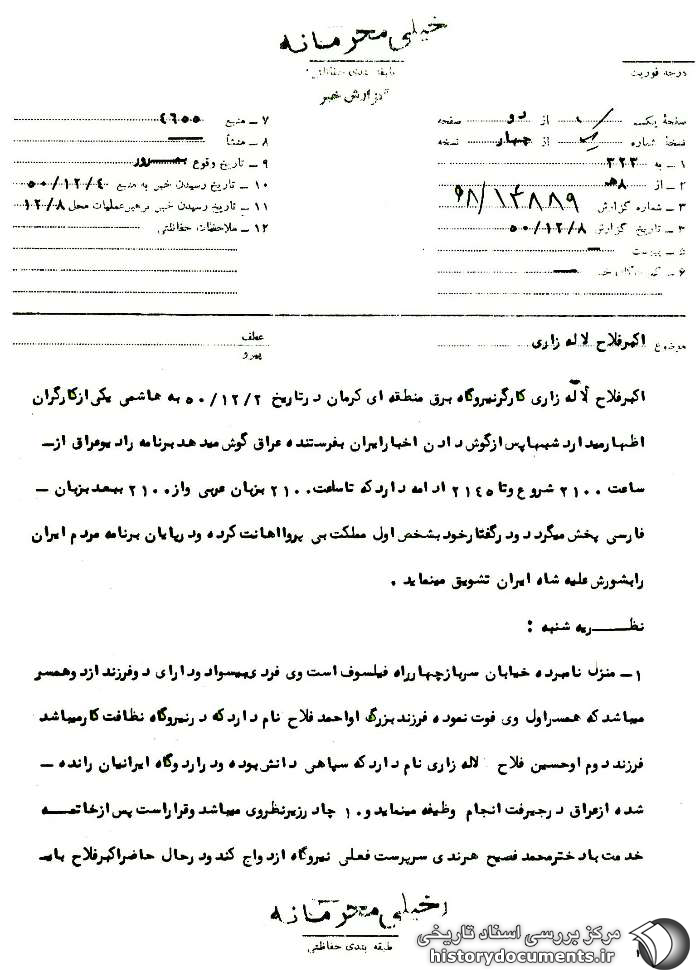 خیلی محرمانه
طبقه بندی حفاظتی
گزارش خبر
درجه فوریت
صفحه یکم از دو صفحه
نسخه شماره از چهار نسخه
۱ – به ۳۲۲
۲ – از ۸هـ
۳ – شماره گزارش ۹۸/۱۴۸۸۹
۴ – تاریخ گزارش ۵۰/۱۲/۸
۵ – پیوست –
۶ –
۷ – منبع ۴۶۵۵
۸ – منشأ
۹ – تاریخ وقوع بمرور
۱۰ – تاریخ رسیدن خبر به منبع ۵۰/۱۲/۴
۱۱ – تاریخ رسیدن خبر برهبر عملیات محل ۱۲/۸
۱۲ – ملاحظات حفاظتی
موضوع اکبر فلاح لاله زاری
عطف
پیرو
اکبر فلاح لاله زاری کارگر نیروگاه برق منطقه ای کرمان در تاریخ ۵۰/۱۲/۲ به هاشمی یکی از کارگران
اظهار میدارد شبها پس از گوش دادن اخبار ایران بفرستنده عراق گوش میدهد برنامه رادیو عراق از –
ساعت ۲۱۰۰ شروع و تا ۲۱۴۵ ادامه دارد که تا ساعت ۲۱۰۰ بزبان عربی و از ۲۱۰۰ ببعد بزبان –
فارسی پخش میگردد و در گفتار خود بشخص اول مملکت بی پروا اهانت کرده و در پایان برنامه مردم ایران
را بشورش علیه شاه ایران تشویق مینماید .
نظریه شنبه :
۱– منزل نامبرده خیابان سرباز چهارراه فیلسوف است وی فردی بیسواد و دارای دو فرزند ازدو همسر
میباشد که همسر اول وی فوت نموده فرزند بزرگ او احمد فلاح نام دارد که در نیروگاه نظافت کار میباشد
فرزند دوم او حسین فلاح لاله زاری نام دارد که سپاهی دانش بوده و در اردوگاه ایرانیان رانده –
شده از عراق در جیرفت انجام وظیفه مینماید و ۱۰ چادر زیر نظر وی میباشد و قرار است پس از خاتمه
خدمت با دختر محمد فصیح هرندی سرپرست فعلی نیروگاه ازدواج کند در حال حاضر اکبر فلاح با سه
خیلی محرمانه
طبقه بندی حفاظتی
مرکز بررسی اسناد تاریخی
historydocuments.ir